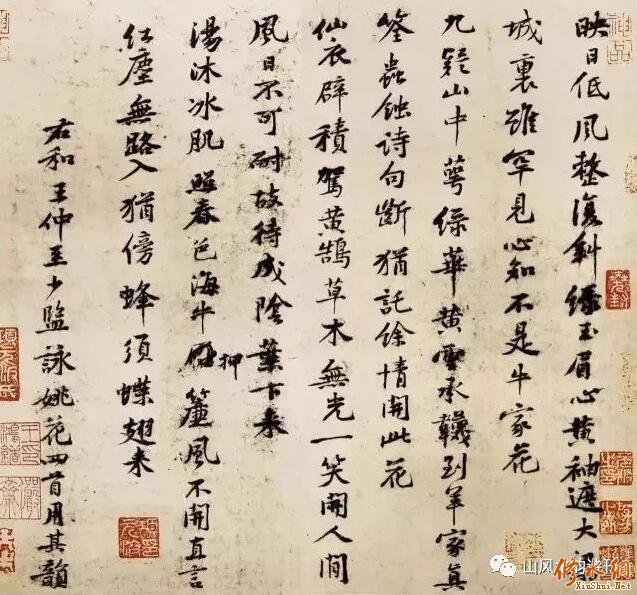 映日低風整復斜綠玉眉心黃袖遮大梁
城裏雖罕見心知不是牛家花
九疑山中萼綠華黃雲承韤到羊家真
筌蟲蝕詩句斷猶託餘情開此花
仙衣辟積駕黃鵠草木無光一笑開人間
風日不可耐故待成陰葉下來
湯沐冰肌照春色海牛押簾風不開直言
紅塵無路入猶傍蜂須蝶翅来
右和王仲至少監詠姚花四首用其韻
神品
山风